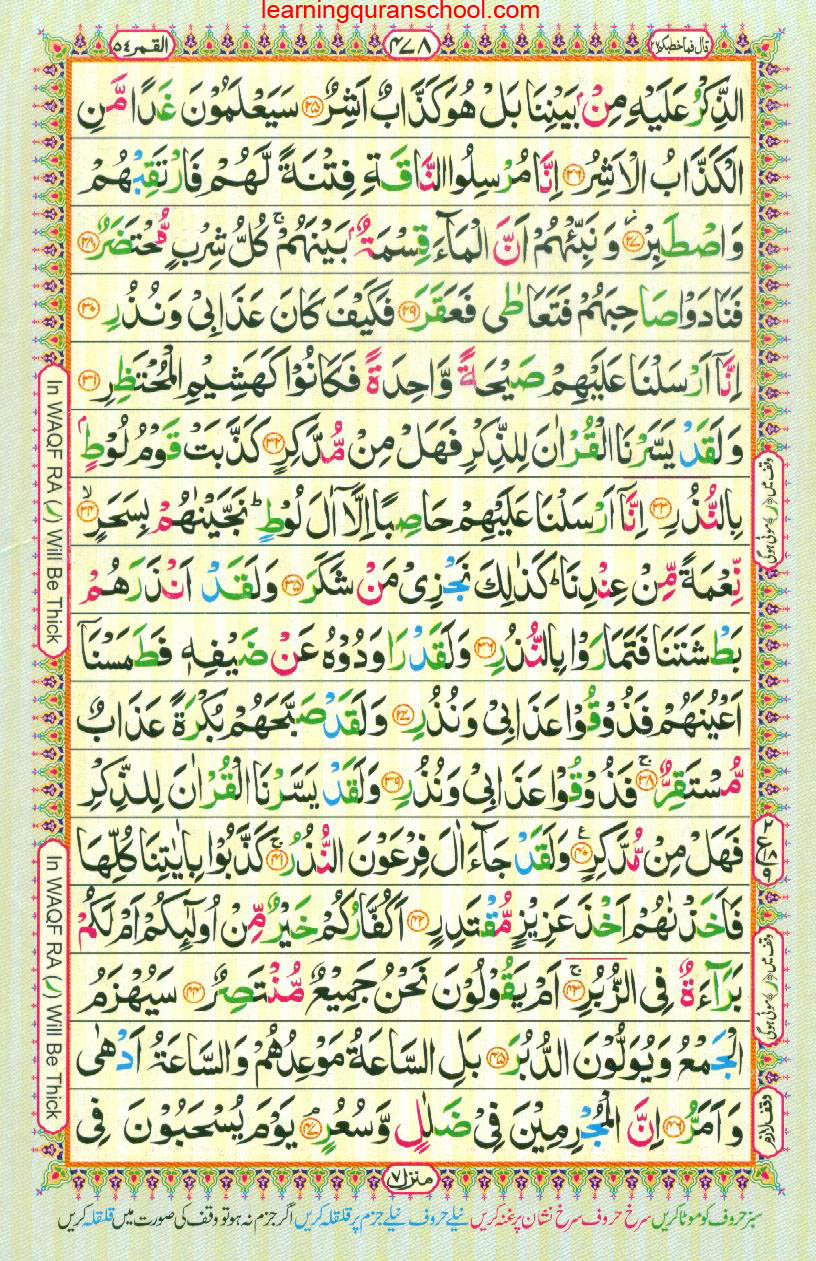 learningquranschool.com
قال فما خطبكم ٢٧
٤٧٨
القمر ٥٤
الذِّكْرُ عَلَيْهِ مِنْۢ بَيْنِنَا بَلْ هُوَ كَذَّابٌ اَشِرٌ ﴿۲۵﴾ سَيَعْلَمُوْنَ غَدًا مَّنِ
الْكَذَّابُ الْاَشِرُ ﴿۲۶﴾ اِنَّا مُرْسِلُوا النَّاقَةِ فِتْنَةً لَّهُمْ فَارْتَقِبْهُمْ
وَاصْطَبِرْ ﴿۲۷﴾ وَنَبِّئْهُمْ اَنَّ الْمَآءَ قِسْمَةٌۢ بَيْنَهُمْ ۚ كُلُّ شِرْبٍ مُّحْتَضَرٌ ﴿۲۸﴾
فَنَادَوْا صَاحِبَهُمْ فَتَعَاطٰى فَعَقَرَ ﴿۲۹﴾ فَكَيْفَ كَانَ عَذَابِىْ وَنُذُرِ ﴿۳۰﴾
اِنَّاۤ اَرْسَلْنَا عَلَيْهِمْ صَيْحَةً وَّاحِدَةً فَكَانُوْا كَهَشِيْمِ الْمُحْتَظِرِ ﴿۳۱﴾
وَلَقَدْ يَسَّرْنَا الْقُرْاٰنَ لِلذِّكْرِ فَهَلْ مِنْ مُّدَّكِرٍ ﴿۳۲﴾ كَذَّبَتْ قَوْمُ لُوْطٍۢ
بِالنُّذُرِ ﴿۳۳﴾ اِنَّاۤ اَرْسَلْنَا عَلَيْهِمْ حَاصِبًا اِلَّاۤ اٰلَ لُوْطٍ ؕ نَجَّيْنٰهُمْ بِسَحَرٍ ۙ﴿۳۴﴾
نِّعْمَةً مِّنْ عِنْدِنَا ؕ كَذٰلِكَ نَجْزِىْ مَنْ شَكَرَ ﴿۳۵﴾ وَلَقَدْ اَنْذَرَهُمْ
بَطْشَتَنَا فَتَمَارَوْا بِالنُّذُرِ ﴿۳۶﴾ وَلَقَدْ رَاوَدُوْهُ عَنْ ضَيْفِهٖ فَطَمَسْنَاۤ
اَعْيُنَهُمْ فَذُوْقُوْا عَذَابِىْ وَنُذُرِ ﴿۳۷﴾ وَلَقَدْ صَبَّحَهُمْ بُكْرَةً عَذَابٌ
مُّسْتَقِرٌّ ۚ﴿۳۸﴾ فَذُوْقُوْا عَذَابِىْ وَنُذُرِ ﴿۳۹﴾ وَلَقَدْ يَسَّرْنَا الْقُرْاٰنَ لِلذِّكْرِ
فَهَلْ مِنْ مُّدَّكِرٍ ﴿۴۰﴾ وَلَقَدْ جَآءَ اٰلَ فِرْعَوْنَ النُّذُرُ ۚ﴿۴۱﴾ كَذَّبُوْا بِاٰيٰتِنَا كُلِّهَا
فَاَخَذْنٰهُمْ اَخْذَ عَزِيْزٍ مُّقْتَدِرٍ ﴿۴۲﴾ اَكُفَّارُكُمْ خَيْرٌ مِّنْ اُولٰٓئِكُمْ اَمْ لَكُمْ
بَرَآءَةٌ فِى الزُّبُرِ ۚ﴿۴۳﴾ اَمْ يَقُوْلُوْنَ نَحْنُ جَمِيْعٌ مُّنْتَصِرٌ ﴿۴۴﴾ سَيُهْزَمُ
الْجَمْعُ وَيُوَلُّوْنَ الدُّبُرَ ﴿۴۵﴾ بَلِ السَّاعَةُ مَوْعِدُهُمْ وَالسَّاعَةُ اَدْهٰى
وَاَمَرُّ ﴿۴۶﴾ اِنَّ الْمُجْرِمِيْنَ فِىْ ضَلٰلٍ وَّسُعُرٍ ۘ﴿۴۷﴾ يَوْمَ يُسْحَبُوْنَ فِى
In WAQF RA (ر) Will Be Thick
In WAQF RA (ر) Will Be Thick
وقف میں ﴿ر﴾ موٹی ہوگی
وقف میں ﴿ر﴾ موٹی ہوگی
وقف لازم
منزل ٧
سبز حروف کو موٹا کریں سرخ حروف سرخ نشان پر غنہ کریں نیلے حروف نیلے جزم پر قلقلہ کریں اگر جزم نہ ہو تو وقف کی صورت میں قلقلہ کریں